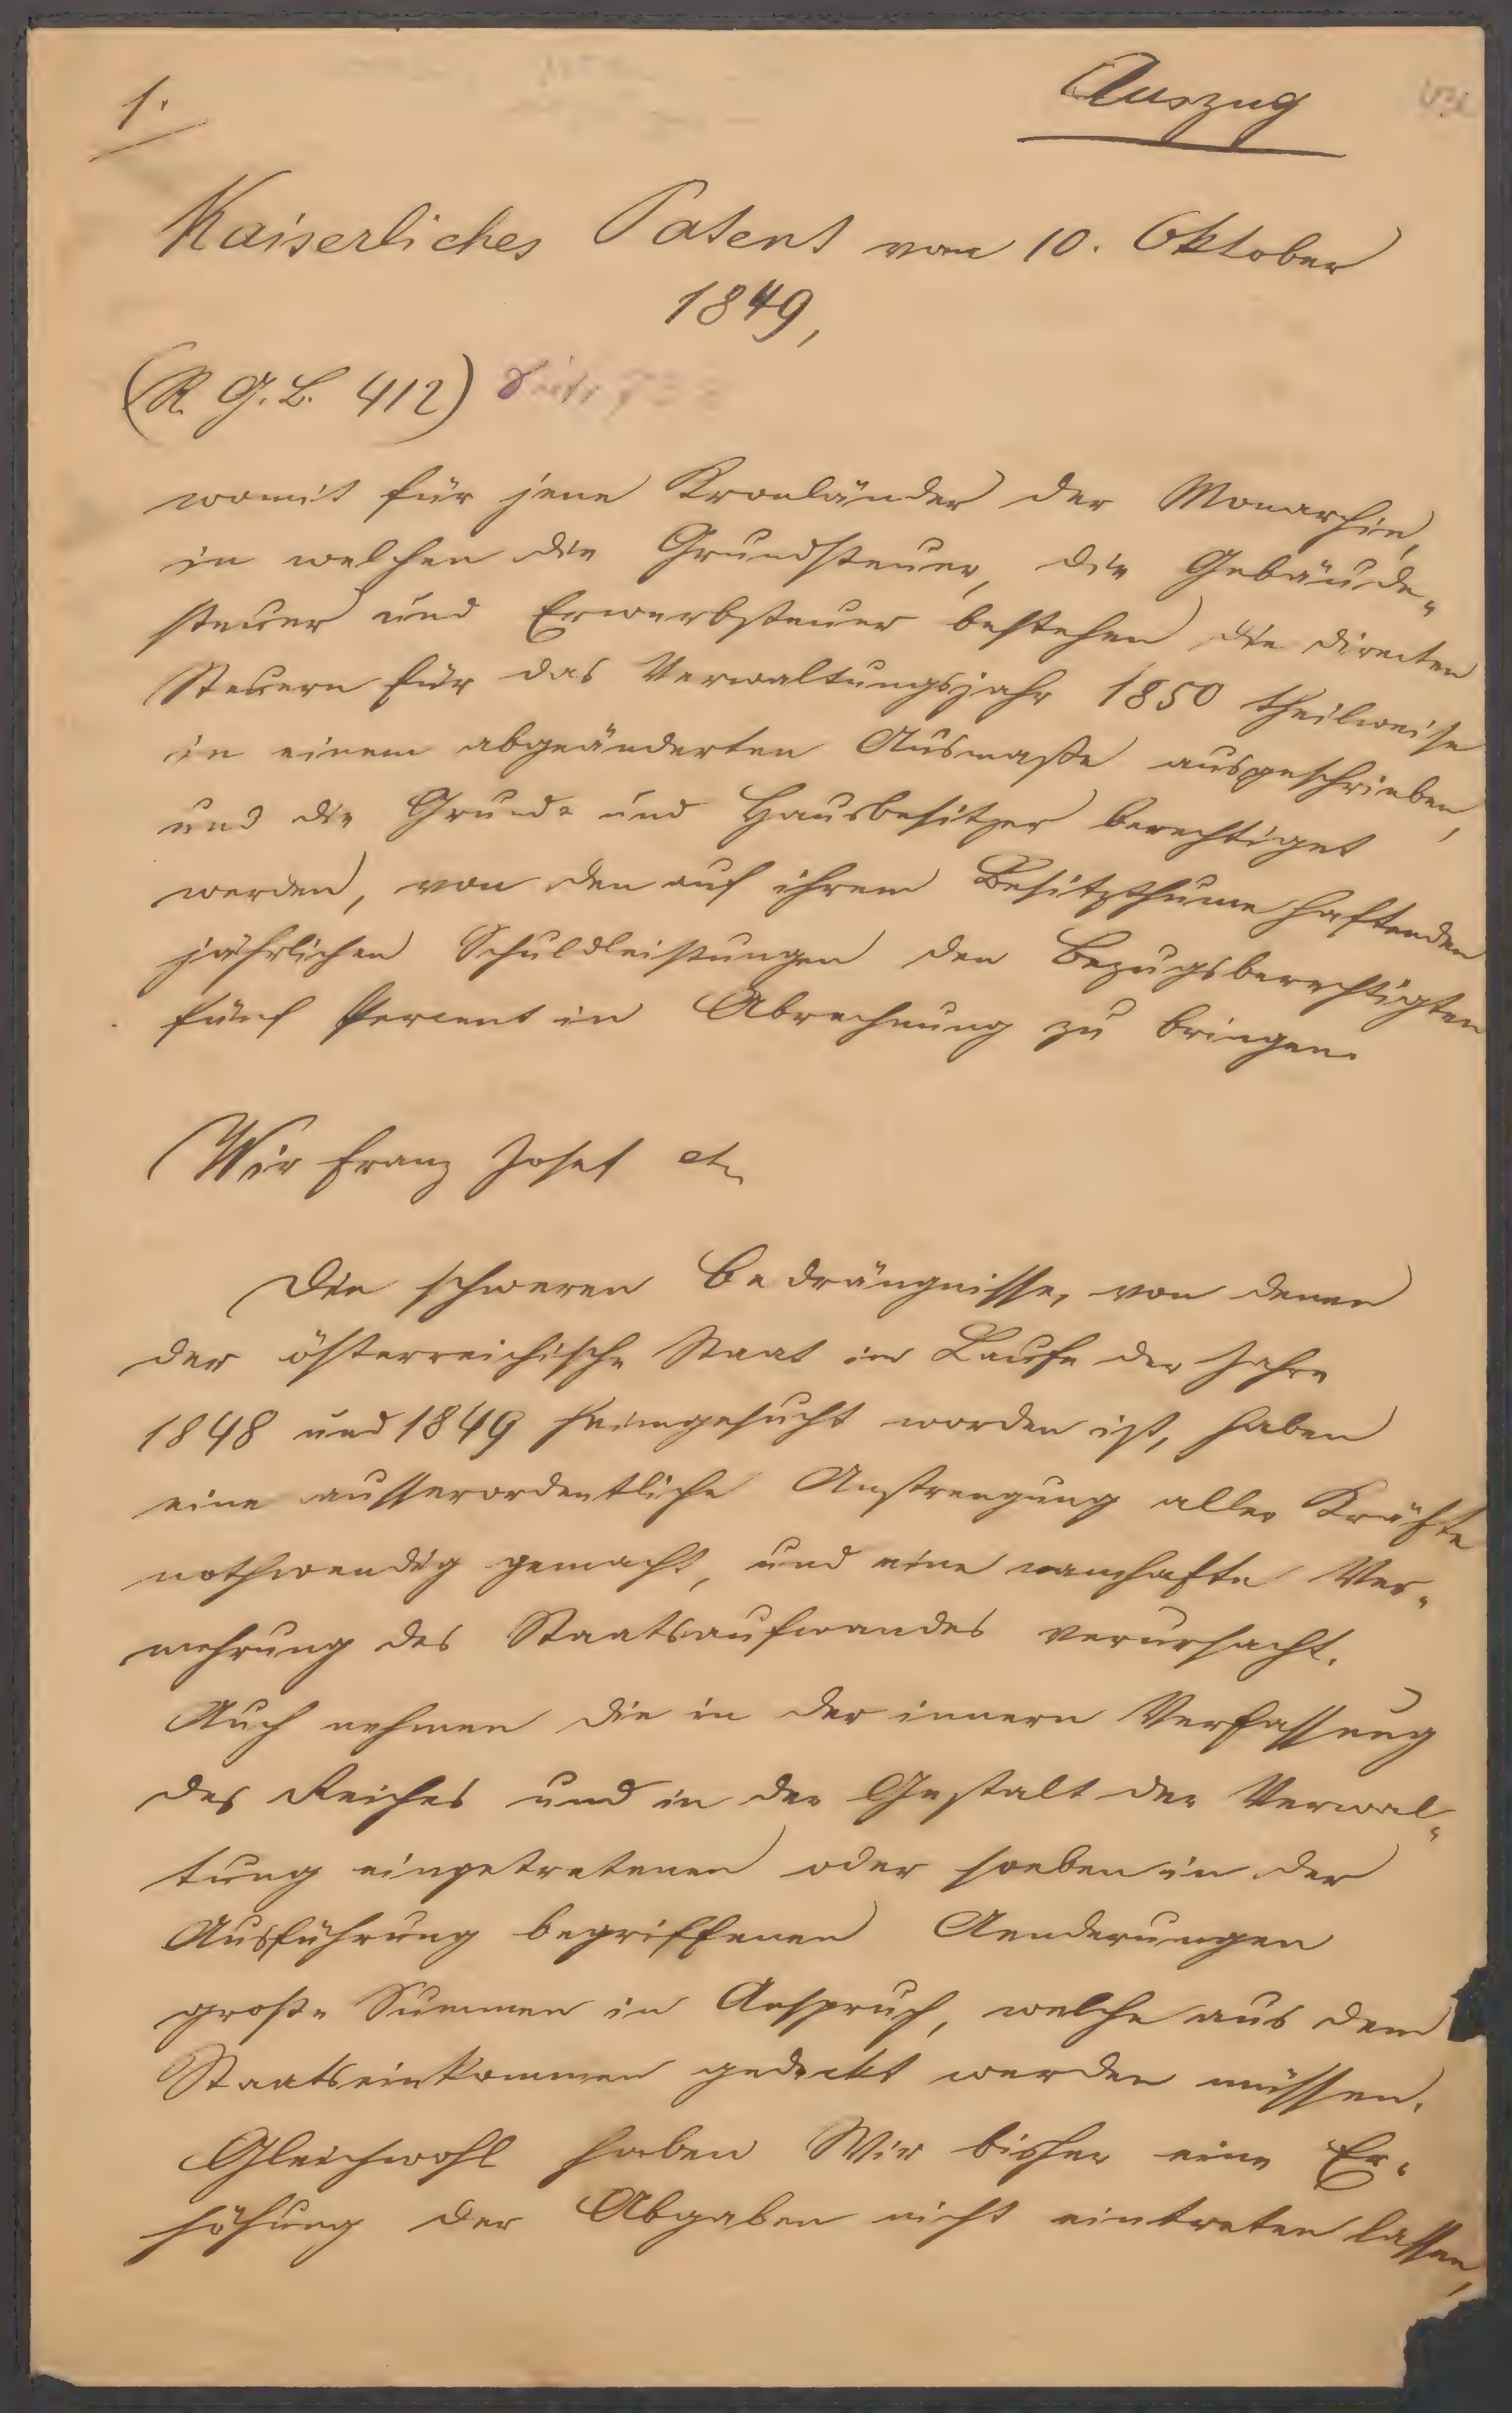 1.
Auszug
Kaiserliches Patent vom 10. Oktober
1849,
(R. G. B. 412) Seite
womit für jene Kronländer der Monarchie,
in welchen die Grundsteuer, die Gebäude-
steuer und Erwerbsteuer bestehen die directen
Steuern für das Verwaltungsjahr 1850 theilweise
in einem abgeänderten Ausmaße ausgeschrieben,
und die Grund- und Hausbesitzer berechtiget
werden, von den auf ihrem Besitzthume haftenden
jährlichen Schuldleistungen den Bezugsberechtigten
fünf Percent in Abrechnung zu bringen.
Wir Franz Josef etc
Die schweren Bedrängnisse, von denen
der österreichische Staat im Laufe der Jahre
1848 und 1849 heimgesucht worden ist, haben
eine ausserordentliche Anstrengung aller Kräfte
nothwendig gemacht, und eine namhafte Ver-
mehrung des Staatsaufwandes verursacht.
Auch nehmen die in der innern Verfassung
des Reiches und in der Gestalt der Verwal-
tung eingetretenen oder soeben in der
Ausführung begriffenen Aenderungen
große Summen in Anspruch, welche aus dem
Staatseinkommen gedeckt werden müssen.
Gleichwohl haben Wir bisher eine Er-
höhung der Abgaben nicht eintreten lassen,